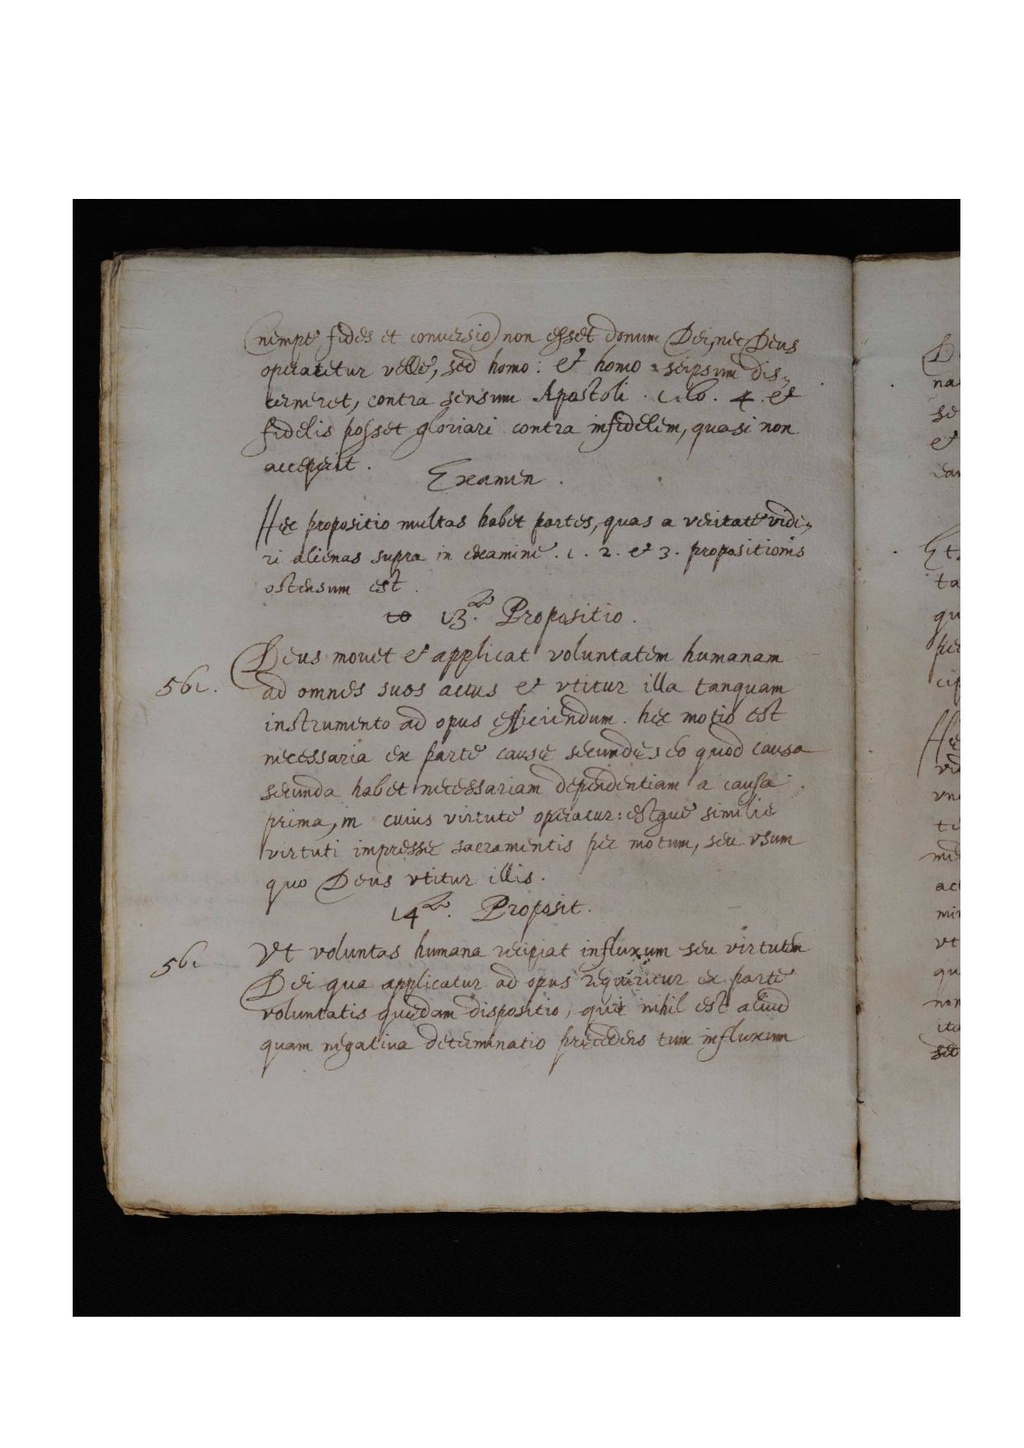 (nempe fides et conuersio) non esset donum Dei, nec Deus
operaretur velle, sed homo: et homo seipsum dis-
cerneret, contra sensum Apostoli 4. et
fidelis posset gloriari contra infidelem, quasi non
acceperit.
Examen.
Hec propositio multas habet partes, quas a veritate vide-
ri alienas supra in examine. 1. 2. et 3. propositionis
ostensum est.
13. Propositio.
Deus mouet et applicat voluntatem humanam
561. ad omnes suos actus et vtitur illa tanquam
instrumento ad opus efficiendum. hec motio est
necessaria ex parte cause secunde, eo quod causa
secunda habet necessariam dependentiam a causa
prima, in cuius virtute operatur: estque similis
virtuti impresse sacramentis per motum, seu vsum
quo Deus vtitur illis.
14. Proposit.
561 Vt voluntas humana recipiat influxum seu virtutem
Dei qua applicatur ad opus requiritur ex parte
voluntatis quedam dispositio, que nihil est aliud
quam negatiua determinatio precedens tum influxum